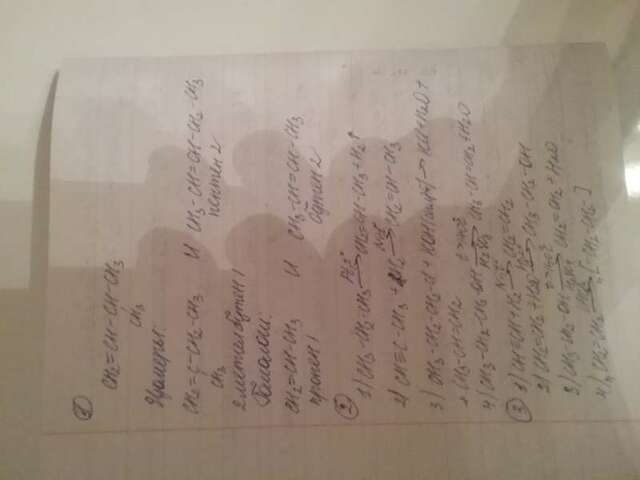 1)
CH2=CH-CH-CH3
CH3
Изомеры:
CH2=C-CH2-CH3 И CH3-CH=CH-CH2-CH3
CH3 пентен 2
2 метил бутен 1
Гомологи:
CH2=CH-CH3 И CH3-CH=CH-CH3
пропен 1 бутен 2
2) 1) CH3-CH2-CH3 → CH2=CH-CH3+H2↑
2) CH≡C-CH3 + H2 → CH2=CH-CH3
3) CH3-CH2-CH2-Cl + KOH → KCl+H2O+
+ CH3-CH=CH2
4) CH3-CH2-CH2-OH → CH3-CH=CH2+H2O
3) 1) CH≡CH+H2 → CH2=CH2
2) CH2=CH2+H2O → CH3-CH2-OH
3) CH3-CH2-OH → CH2=CH2+H2O
4) n CH2=CH2 → [-CH2-CH2-]